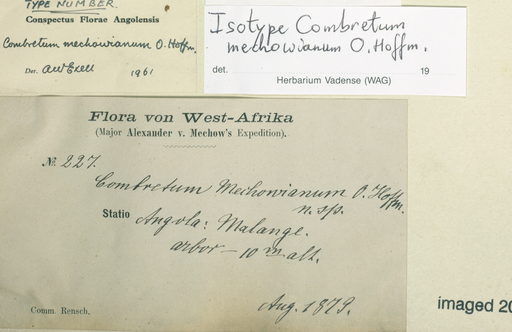 TYPE NUMBER
Conspectus Florae Angolensis
Combretum mechowianum O. Hoffm.
Det. AW Exell 1961
Isotype Combretum
mechowianum O. Hoffm.
det. 19
Herbarium Vadense (WAG)
Flora von West-Afrika
(Major Alexander v. Mechow's Expedition).
№ 227.
Combretum Mechowianum O. Hoffm.
n. sp.
Statio Angola: Malange.
arbor — 10 m alt.
Aug. 1879.
Comm. Rensch.
imaged 20